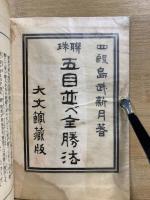 四段高武新月著
聯珠
五目並べ全勝法
大文館藏版